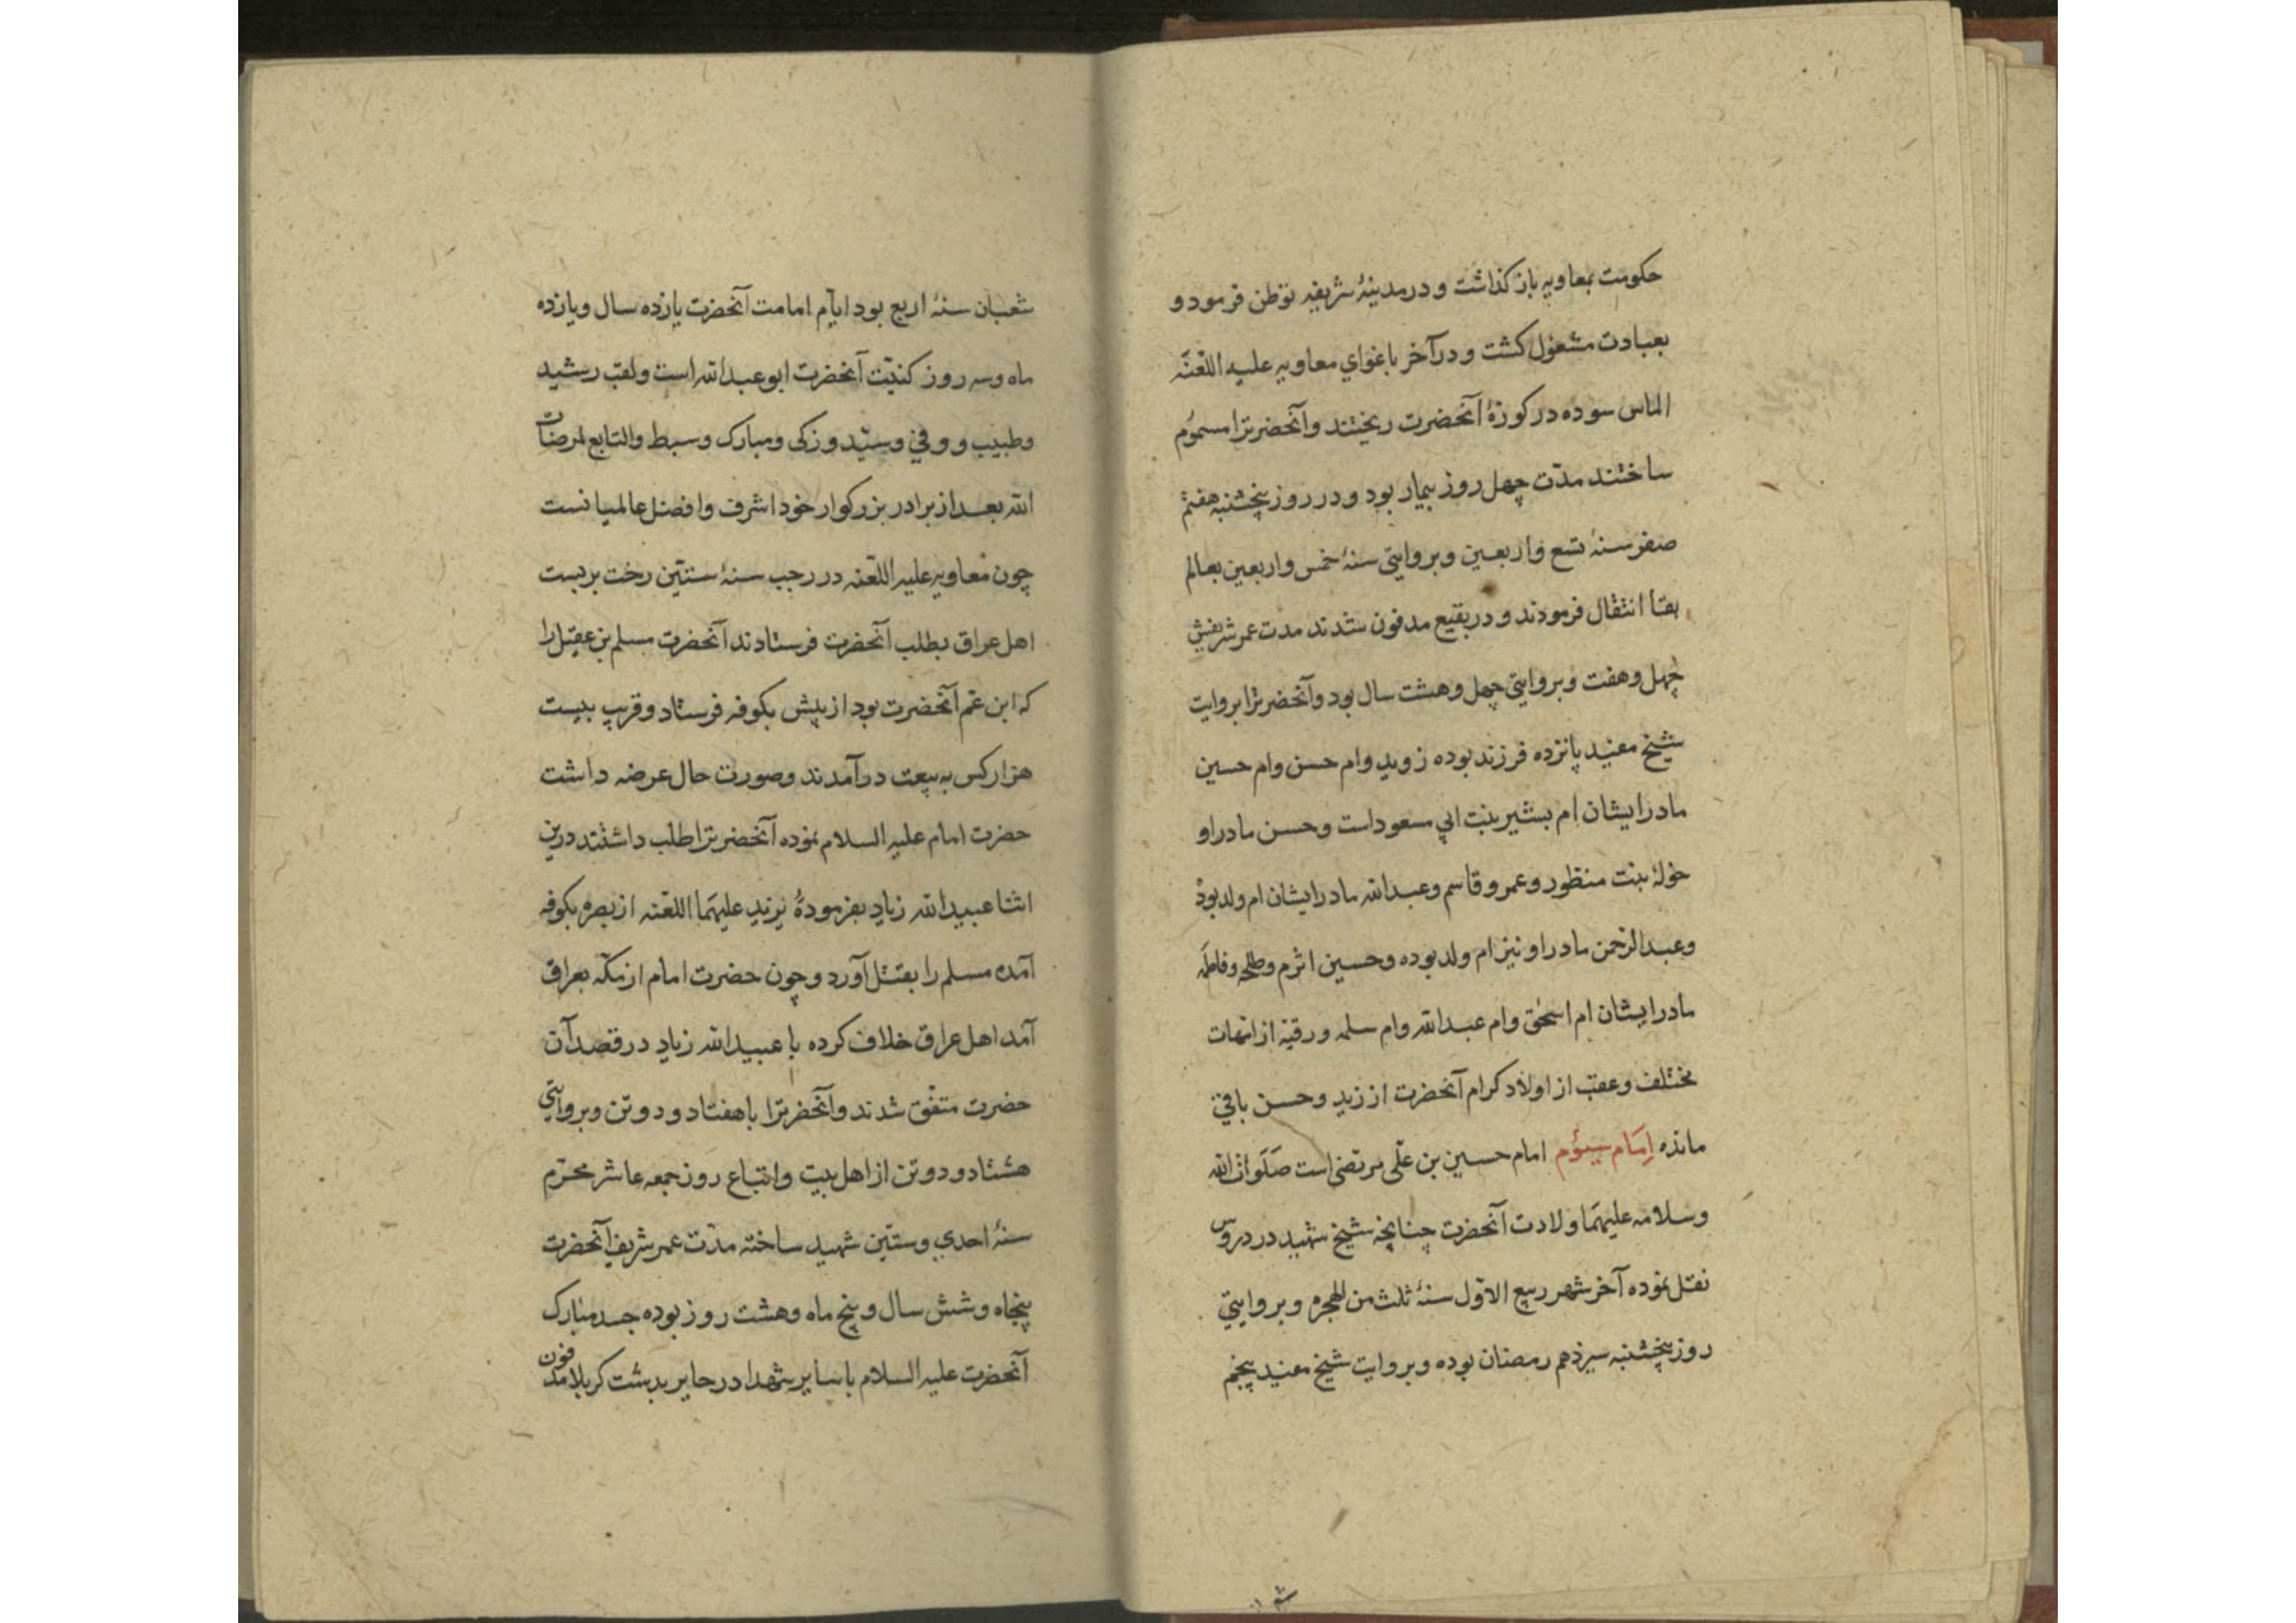 حکومت بمعاویه باز کذاشت و در مدینۀ شریفه توطن فرمود و
بعبادت مشغول کشت و در آخر باغوای معاویه علیه اللعنَه
الماس سوده در کوزۀ آنحضرت ریختند و آنحضرترا مسموُم
ساختند مدّت چهل روز بیمار بود و در روز پنجشنبه هفتم
صفر سنۀ تسع و اربعین و بروایتی سنۀ خمس و اربعین بعالم
بقا انتقال فرمودند و در بقیع مدفون شدند مدت عمر شریفش
چهل و هفت و بروایتی چهل و هشت سال بود و آنحضرترا بروایت
شیخ مفید پانزده فرزند بوده زوید وام حسن وام حسین
مادر ایشان ام بشیر بنت ابی مسعود است و حسن مادر او
خولۀ بنت منظور و عمرو قاسم و عبدالله مادر ایشان ام ولد بودْ
و عبدالرحمن مادر او نیز ام ولد بوده و حسین اثرم و طلحه و فاطمَه
مادر ایشان ام اسحٰق وام عبدالله وام سلمه و رقیّه از امهات
مختلف و عقب از اولاد کرام آنحضرت از زید و حسن باقی
مانده اِمَام سیئوم امام حسین بن علّی مرتضی است صَلَواتُ الله
و سلامه علیهمَا ولادت آنحضرت چنانچه شیخ شهید در دروس
نقل نموده آخر شهر ربیع الاوّل سنۀ ثلث من الهجره و بروایتی
روز پنجشنبه سیزدهم رمضان بوده و بروایت شیخ مفید پنجم
شعبان سنۀ اربع بود ایّام امامت آنحضرت یازده سال و یازده
ماه و سه روز کنیّت آنحضرت ابو عبدالله است و لقب رشید
و طبیب و وفی و سیّد و زکی و مبارک و سبط و التابع لمرضات
الله بعد از برادر بزرکوار خود اشرف و افضل عالمیانست
چون معاویه علیه اللّعنه در رجب سنۀ ستّین رخت بربست
اهل عراق بطلب آنحضرت فرستادند آنحضرت مسلم بن عقیل را
که ابن عم آنحضرت بود از پیش بکوفه فرستاد و قریب بیست
هزار کس به بیعت درآمدند و صورت حال عرضه داشت
حضرت امام علیه السلام نموده آنحضرترا طلب داشتند درین
اثنا عبیدالله زیاد بفرمودۀ یزید علیهمَا اللعنه از بصره بکوفه
آمده مسلم را بقتل آورد و چون حضرت امام از مکّه بعراق
آمد اهل عراق خلاف کرده با عبیدالله زیاد در قصد آن
حضرت متفق شدند و آنحضرترا با هفتاد و دو تن و بروایتی
هشتاد و دو تن از اهل بیت و اتباع روز جمعه عاشر محرّم
سنۀ احدی و ستّین شهید ساخته مدّت عمر شریف آنحضرت
پنجاه و شش سال و پنج ماه و هشت روز بوده جسد مبارک
آنحضرت علیه السلام با سایر شهدا در حایر بدشت کربلا مدفون